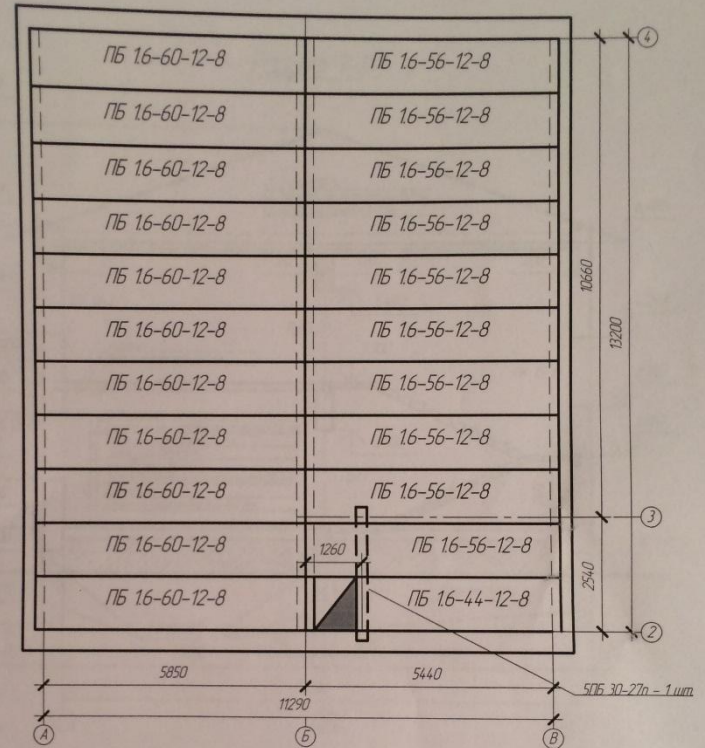 ПБ 1.6-60-12-8 ПБ 1.6-56-12-8
ПБ 1.6-60-12-8 ПБ 1.6-56-12-8
ПБ 1.6-60-12-8 ПБ 1.6-56-12-8
ПБ 1.6-60-12-8 ПБ 1.6-56-12-8
ПБ 1.6-60-12-8 ПБ 1.6-56-12-8
ПБ 1.6-60-12-8 ПБ 1.6-56-12-8
ПБ 1.6-60-12-8 ПБ 1.6-56-12-8
ПБ 1.6-60-12-8 ПБ 1.6-56-12-8
ПБ 1.6-60-12-8 ПБ 1.6-56-12-8
ПБ 1.6-60-12-8 1260 ПБ 1.6-56-12-8
ПБ 1.6-60-12-8 ПБ 1.6-44-12-8
4
10660
13200
3
2540
2
5850 5440
5ПБ 30-27п - 1 шт
11290
А Б В